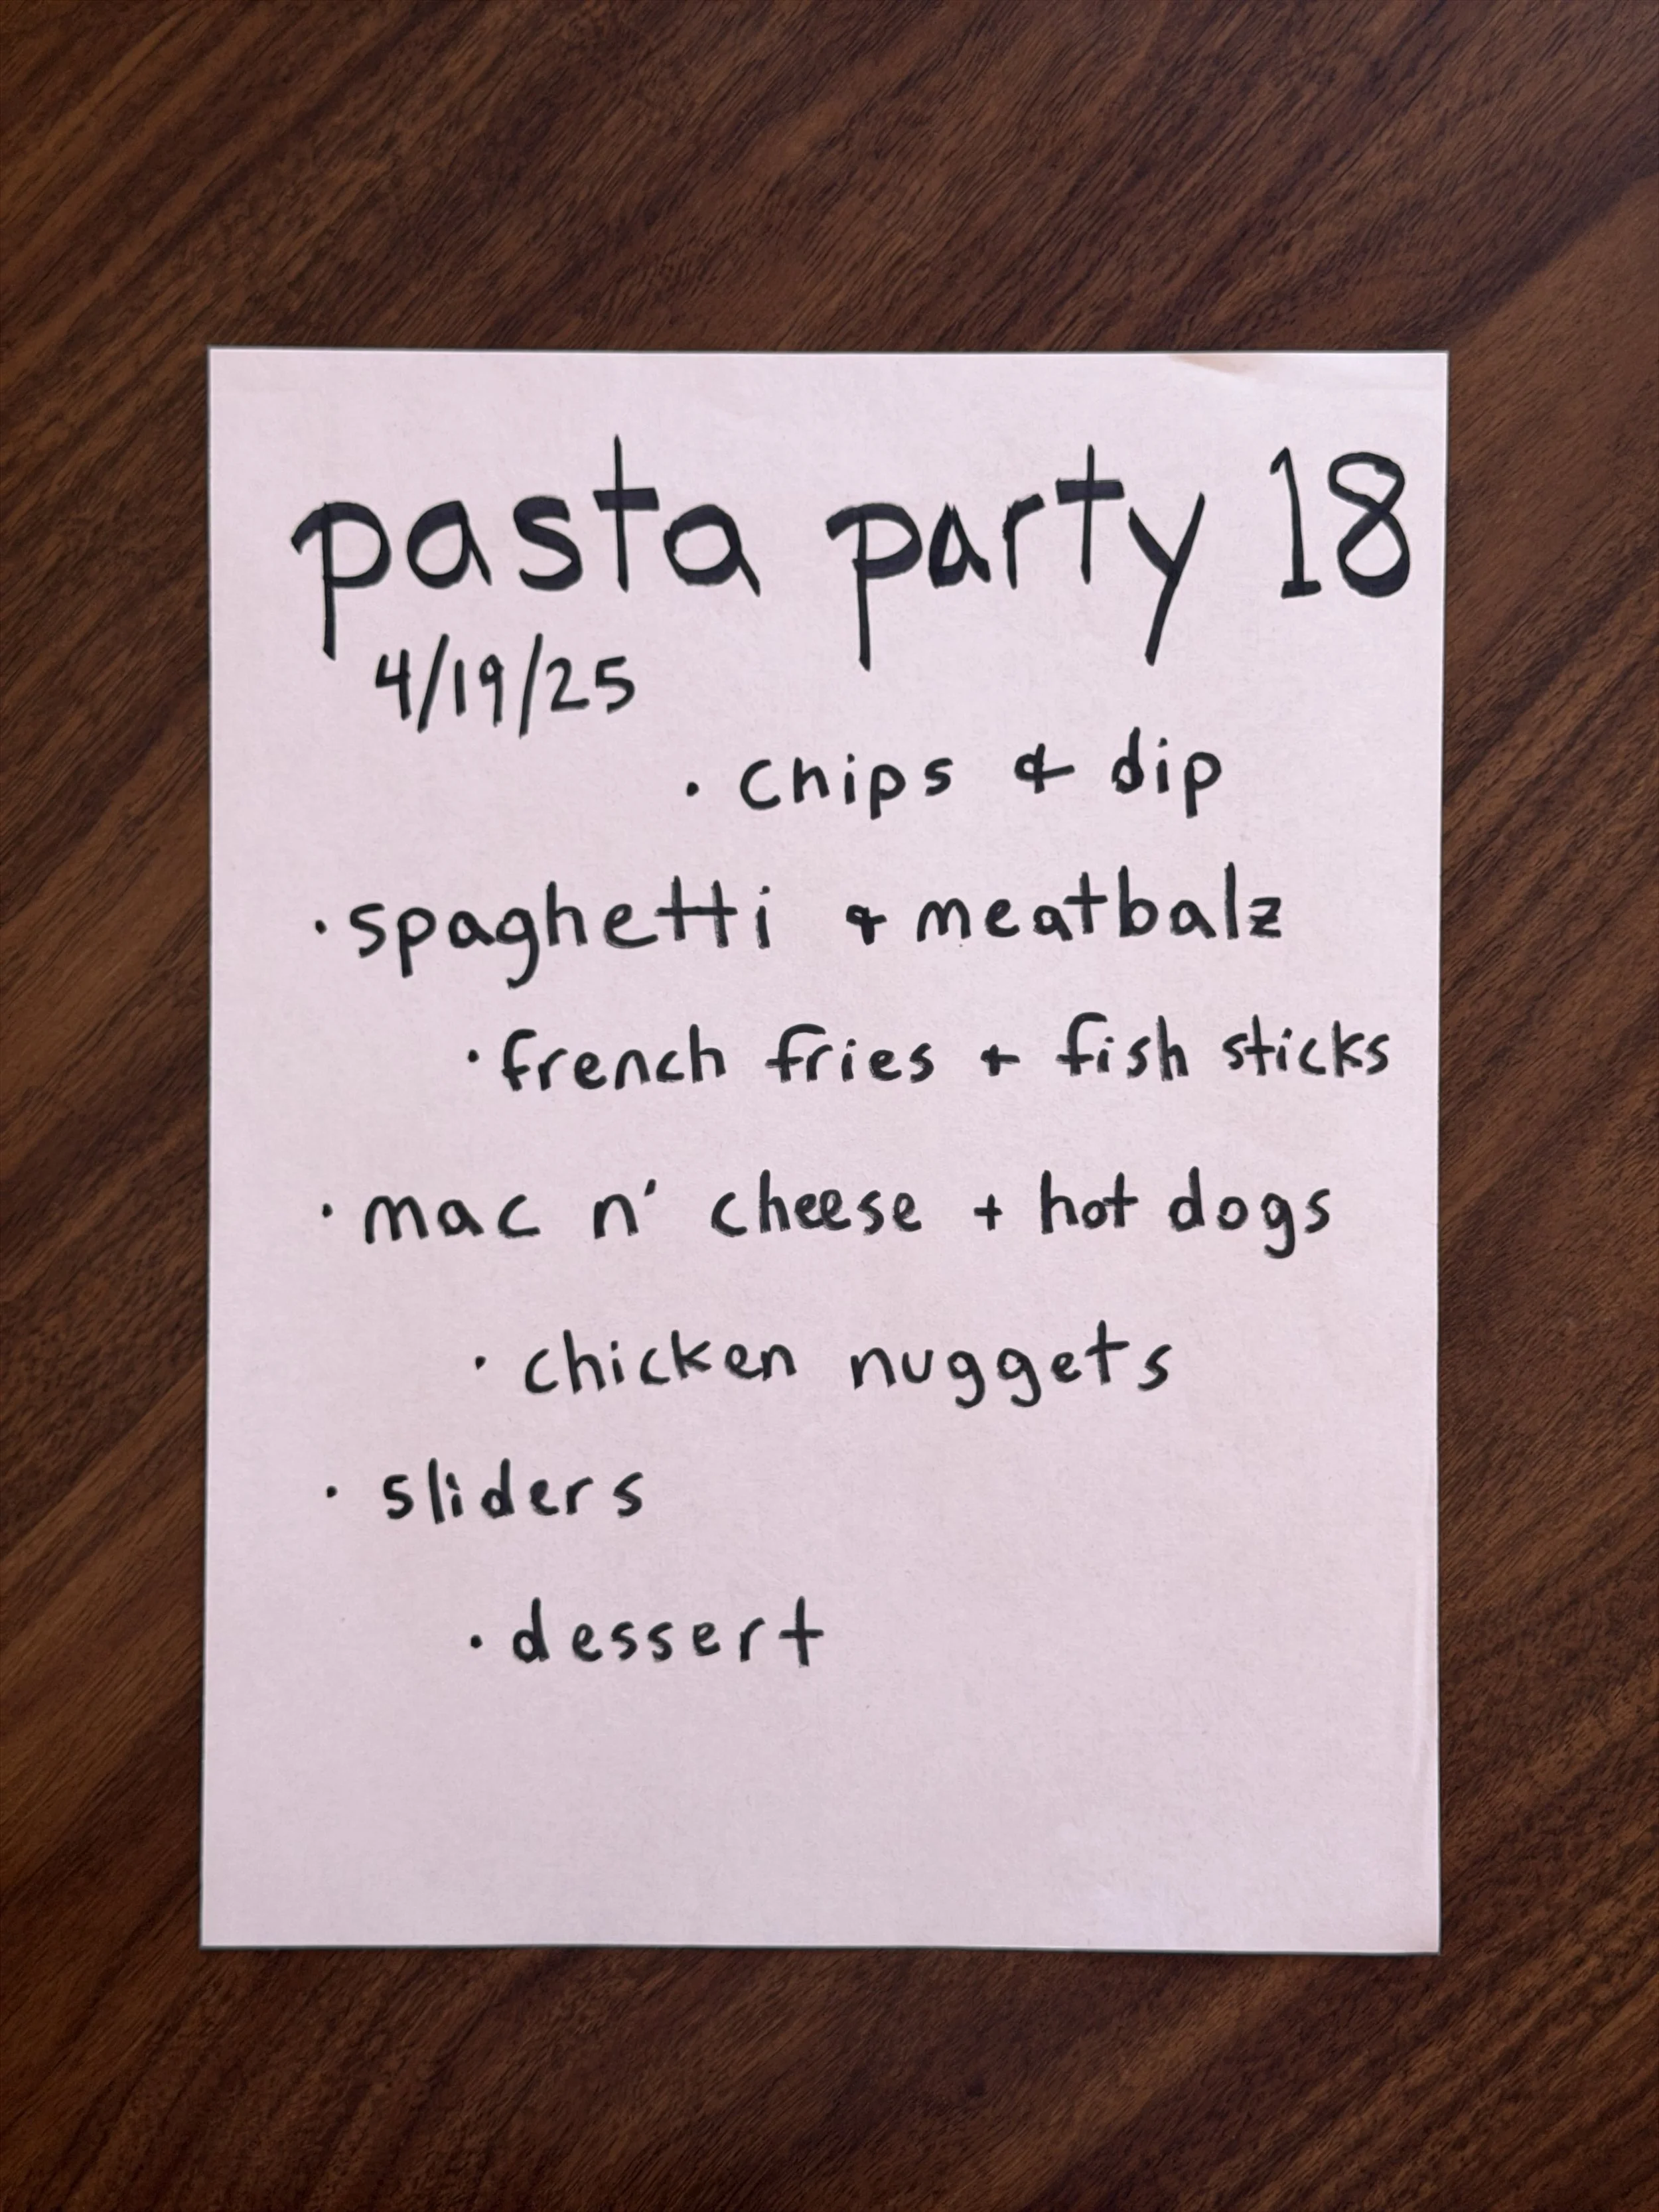 pasta party 18
4/19/25
· chips & dip
· spaghetti & meatbalz
· french fries + fish sticks
· mac n' cheese + hot dogs
· chicken nuggets
· sliders
· dessert